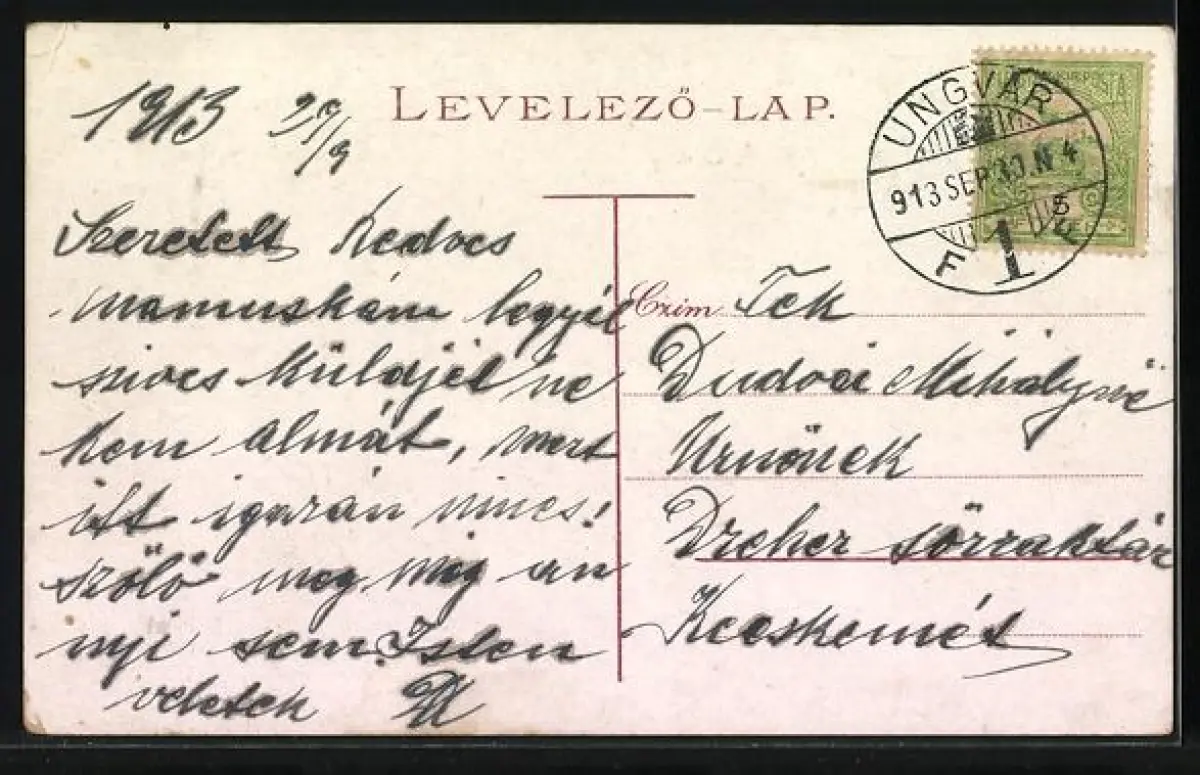 1913 29/9
LEVELEZŐ-LAP.
UNGVÁR
913 SEP 30. N 4
F 1
Szeretett Kedves
mamuskám legyél
szives küldjél ne
kem almát, mert
itt igazán nincs!
szőlő meg még an
nyi sem. Isten
veletek
Czim Tek
Dudvái Mihályné
Urnőnek
Dreher sörraktár
Kecskemét